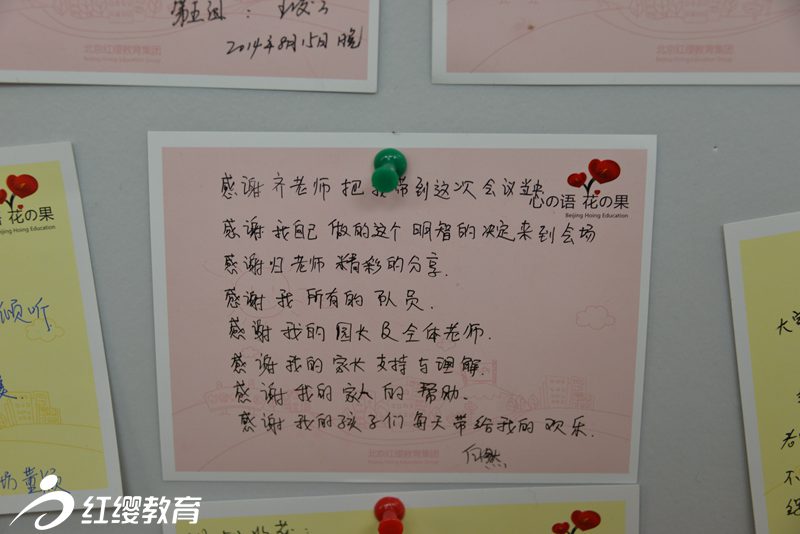 第五组：
2014年8月15日晚
北京红缨教育集团
Beijing Hoing Education Group
北京红缨教育集团
感谢齐老师把我带到这次会议当中
心の语 花の果
Beijing Hoing Education
感谢我自己做的这个明智的决定来到会场
感谢归老师精彩的分享.
感谢我所有的队员.
感谢我的园长及全体老师.
感谢我的家长支持与理解.
感谢我的家人的帮助.
感谢我的孩子们每天带给我的欢乐.
北京红缨教育集团
语 花の果
Hoing Education
倾听
红缨教育